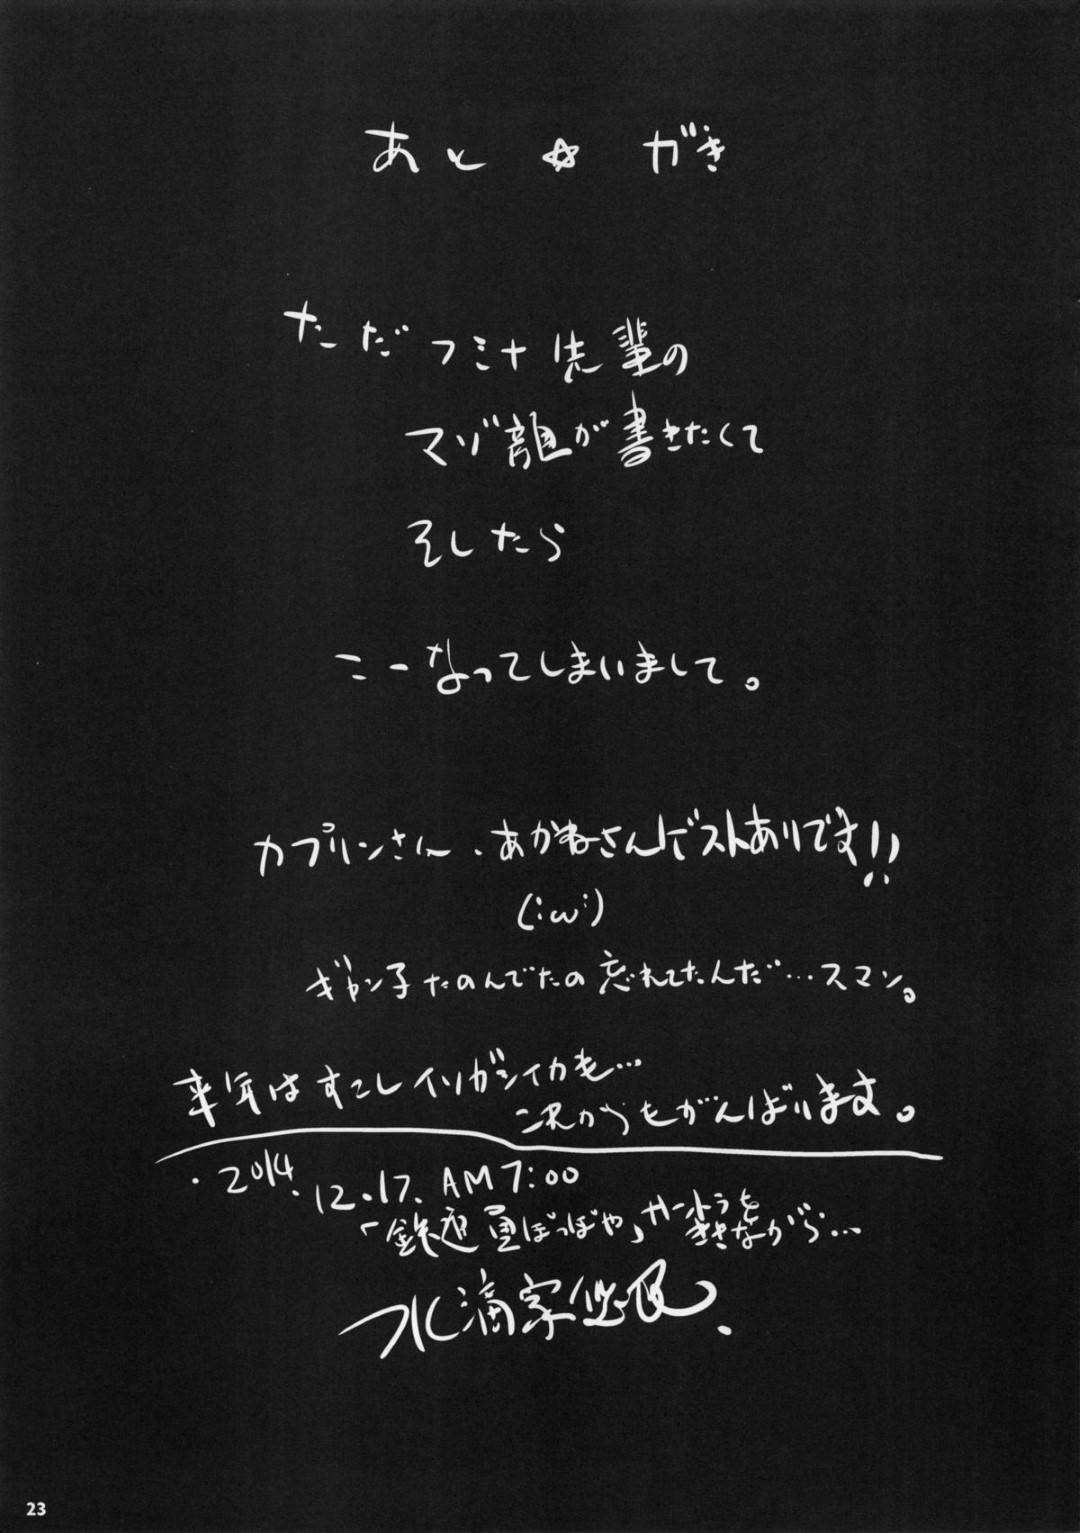 あと☆がき
ただフミナ先輩の
マゾ龍が書きたくて
そしたら
こーなってしまいまして。
カプリンさん、あかねさんゲストありです!!
(;ω;)
ギャン子たのんでたの忘れてたんだ…スマン。
来年はすこしイソガシイカも…
これからもがんばります。
.2014.12.17. AM7:00
「鉄道員ぽっぽや」サントラを
ききながら…
水滴家
23